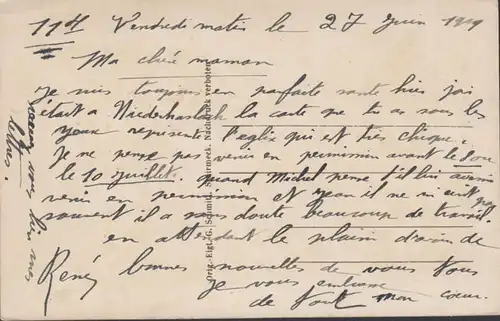 11 H Vendredi matin le 27 Juin 1919
Ma chère maman
Je suis toujours en parfaite santé hier j'ai
était a Niederhaslach la carte que tu as sous les
yeux represente l'eglise qui est très chique.
Je ne pense pas venir en permission avant le
le 10 Juillet. quand Michel pense t'il lui avoir
venir en permission et Jean il ne m'ecrit pas
souvent il a sans doute beaucoup de travail.
en attendant le plaisir d'avoir de
bonnes nouvelles de vous tous
je vous embrasse
de tout mon cœur.
René
lettres.
Orig.-Eigt.-G. Schmitt, Schirmeck. Nachdruck verboten.